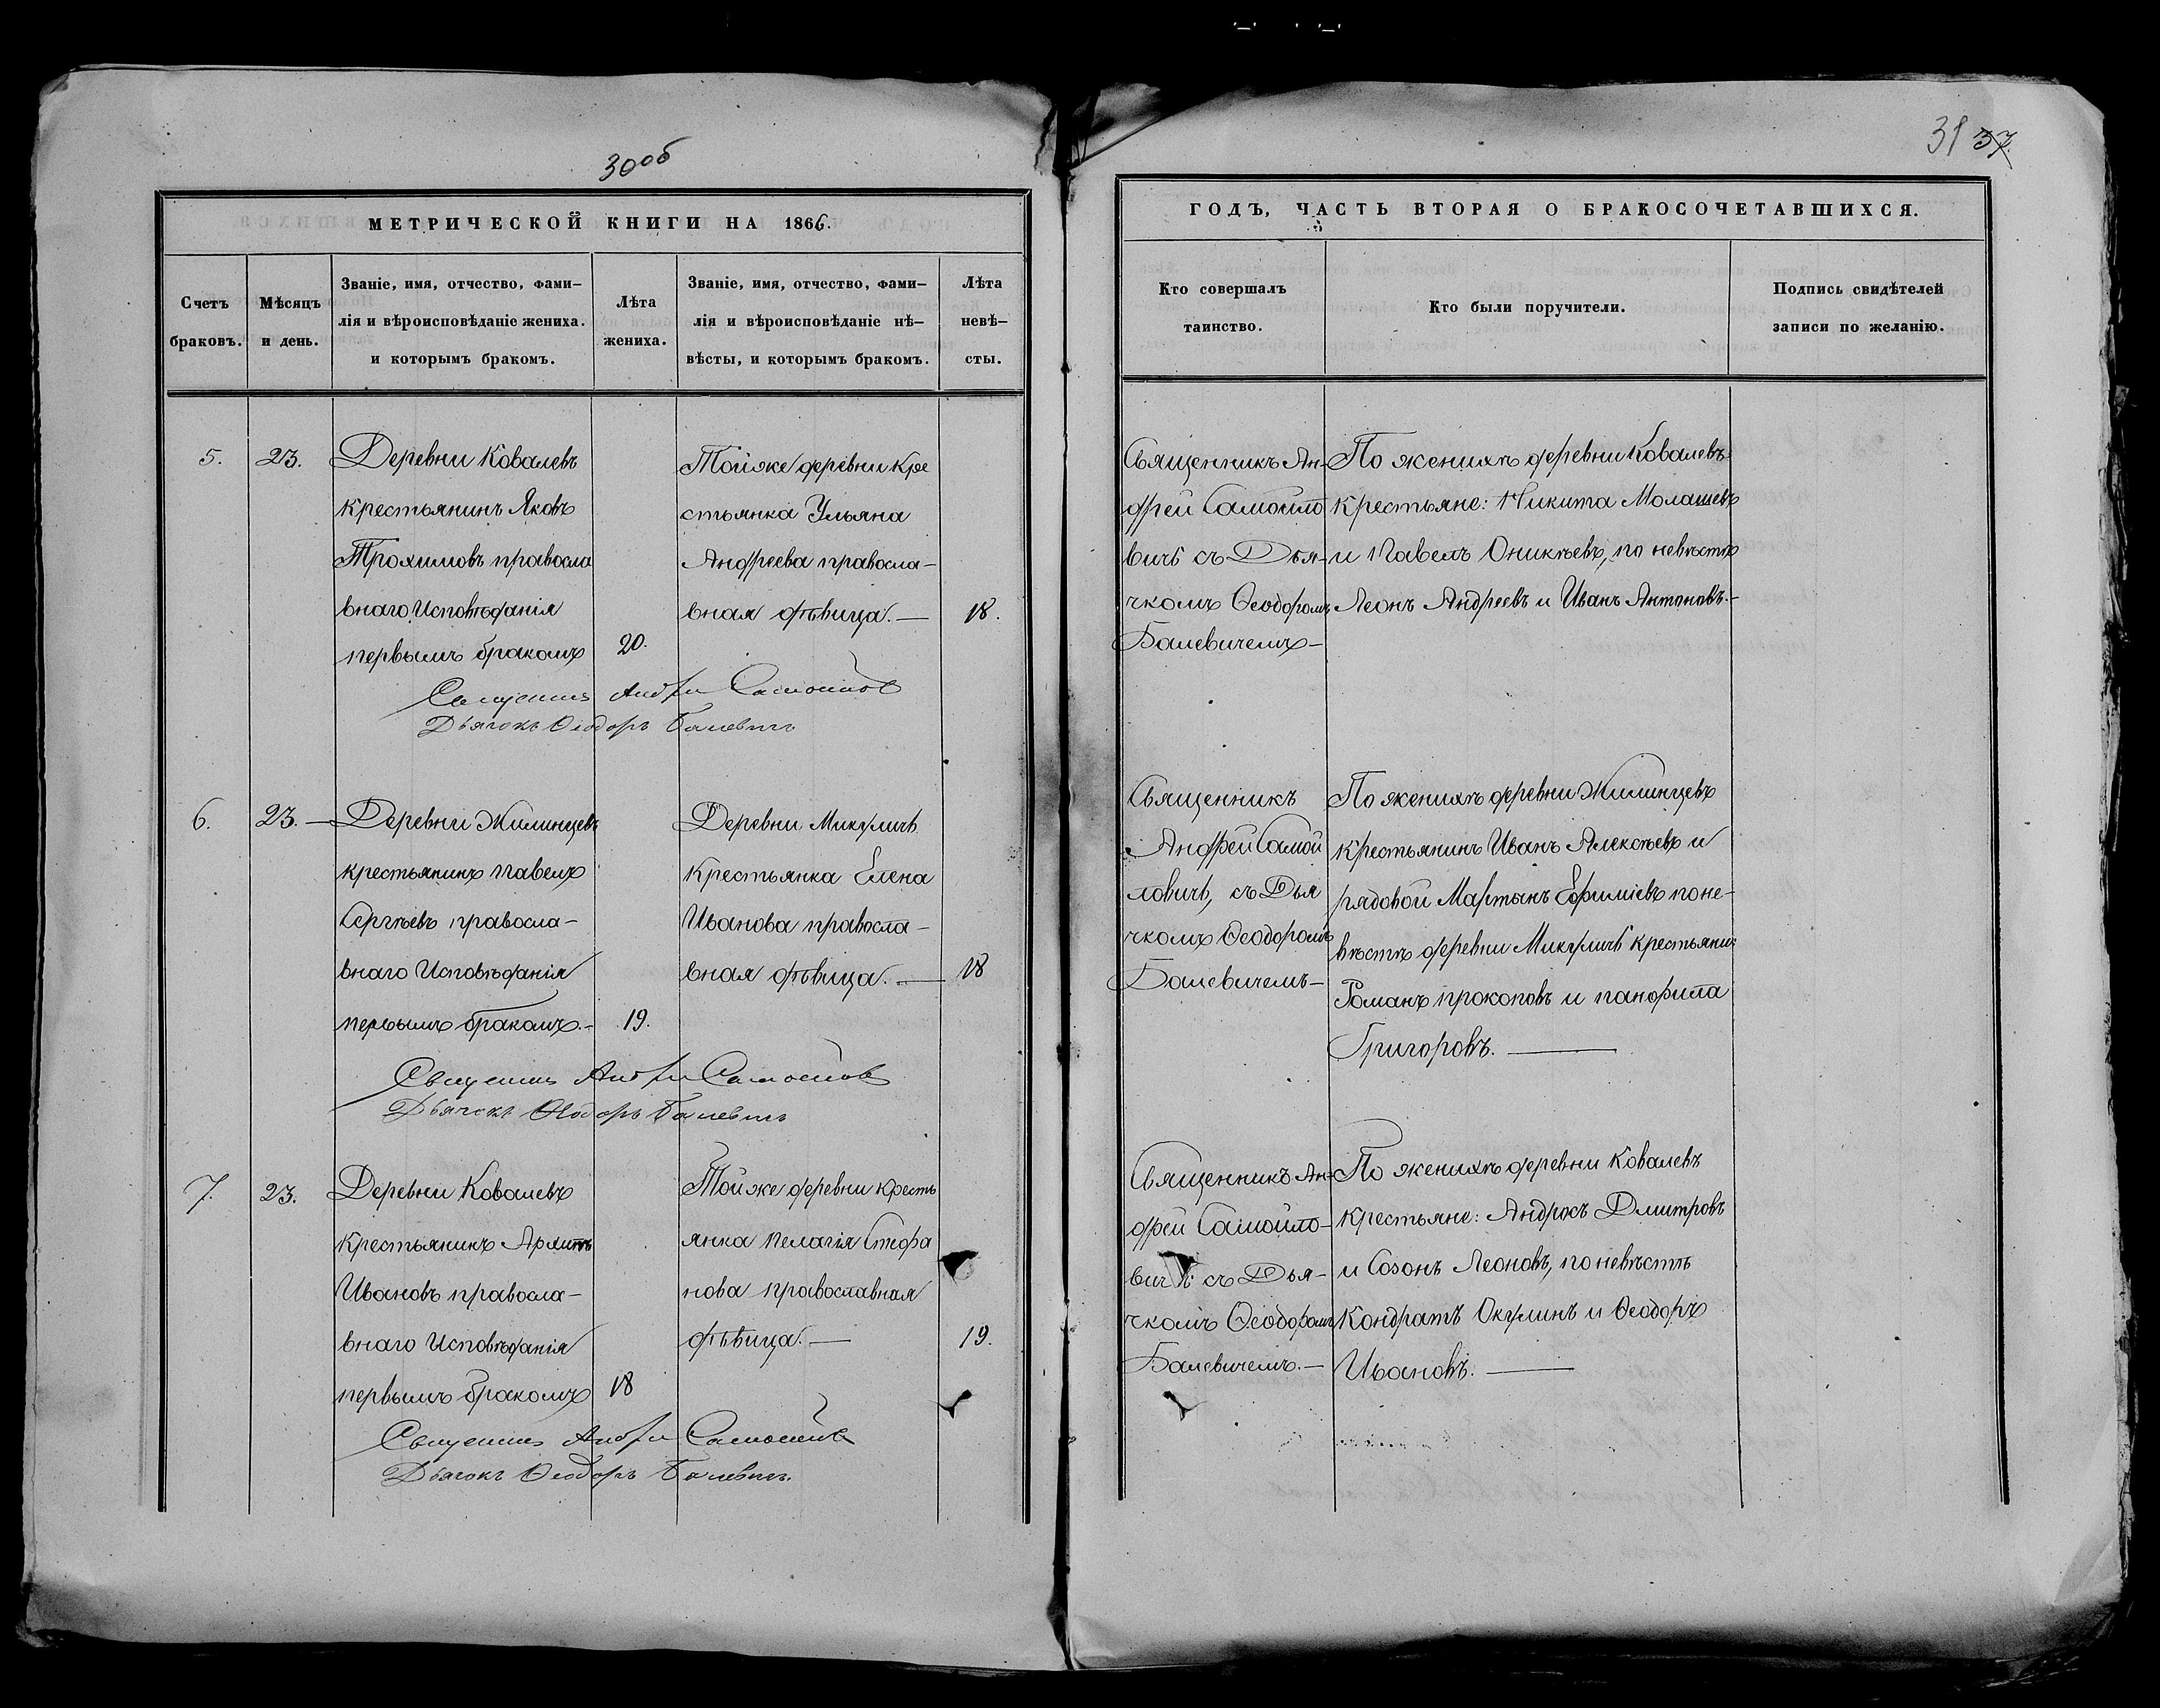 30об
МЕТРИЧЕСКОЙ КНИГИ НА 1866.
Счетъ
браковъ.
Мѣсяцъ
и день.
Званіе, имя, отчество, фами-
лія и вѣроисповѣданіе жениха.
и которымъ бракомъ.
Лѣта
жениха.
Званіе, имя, отчество, фами-
лія и вѣроисповѣданіе нѣ-
вѣсты, и которымъ бракомъ.
Лѣта
невѣ-
сты.
5.
23.
Деревни Ковалевъ
крестьянинъ Яковъ
Трохимовъ правосла
внаго Исповѣданія
первымъ бракомъ
20.
Тойже деревни кре
стьянка Ульяна
Андреева правосла-
вная дѣвица. —
18.
Священникъ Андрей Самойлов
Дьячокъ Ѳеодоръ Балевичъ
6.
23. —
Деревни Жилинцевъ
крестьянинъ Павелъ
Сергѣевъ правосла-
внаго Исповѣданія
первымъ бракомъ.-
19.
Деревни Микуличъ
крестьянка Елена
Иванова правосла-
вная дѣвица. —
18
Священникъ Андрей Самойлов
Дьячокъ Ѳеодоръ Балевичъ
7.
23.
Деревни Ковалевъ
крестьянинъ Архипъ
Ивановъ правосла-
внаго Исповѣданія
первымъ бракомъ
18
Тойже деревни кресть
янка Пелагія Стефа
нова православная
дѣвица. —
19.
Священникъ Андрей Самойлов
Дьячокъ Ѳеодоръ Балевичъ.
31 37
ГОДЪ, ЧАСТЬ ВТОРАЯ О БРАКОСОЧЕТАВШИХСЯ.
Кто совершалъ
таинство.
Кто были поручители.
Подпись свидѣтелей
записи по желанію.
Священникъ Ан-
дрей Самойло
вичъ съ Дья-
чкомъ Ѳеодоромъ
Балевичемъ-
По женихѣ деревни Ковалевъ
крестьяне: Никита Молашевъ
и Павелъ Оникѣевъ, по невѣстѣ
Леонъ Андреевъ и Иванъ Антоновъ.-
Священникъ
Андрей Самой
ловичъ, съ Дья
чкомъ Ѳеодоромъ
Балевичемъ-
По женихѣ деревни Жилинцевъ
крестьянинъ Иванъ Алексѣевъ и
рядовой Мартынъ Ефиміевъ по не-
вѣстѣ деревни Микуличъ крестьяни:
Романъ прокоповъ и панфила
Григоровъ. —
Священникъ Ан-
дрей Самойло-
вичъ съ Дья-
чкомъ Ѳеодоромъ
Балевичемъ.-
По женихѣ деревни Ковалевъ
крестьяне: Андросъ Дмитровъ
и Созонъ Леоновъ, по невѣстѣ
Кондратъ Окулинъ и Ѳеодоръ
Ивановъ. —